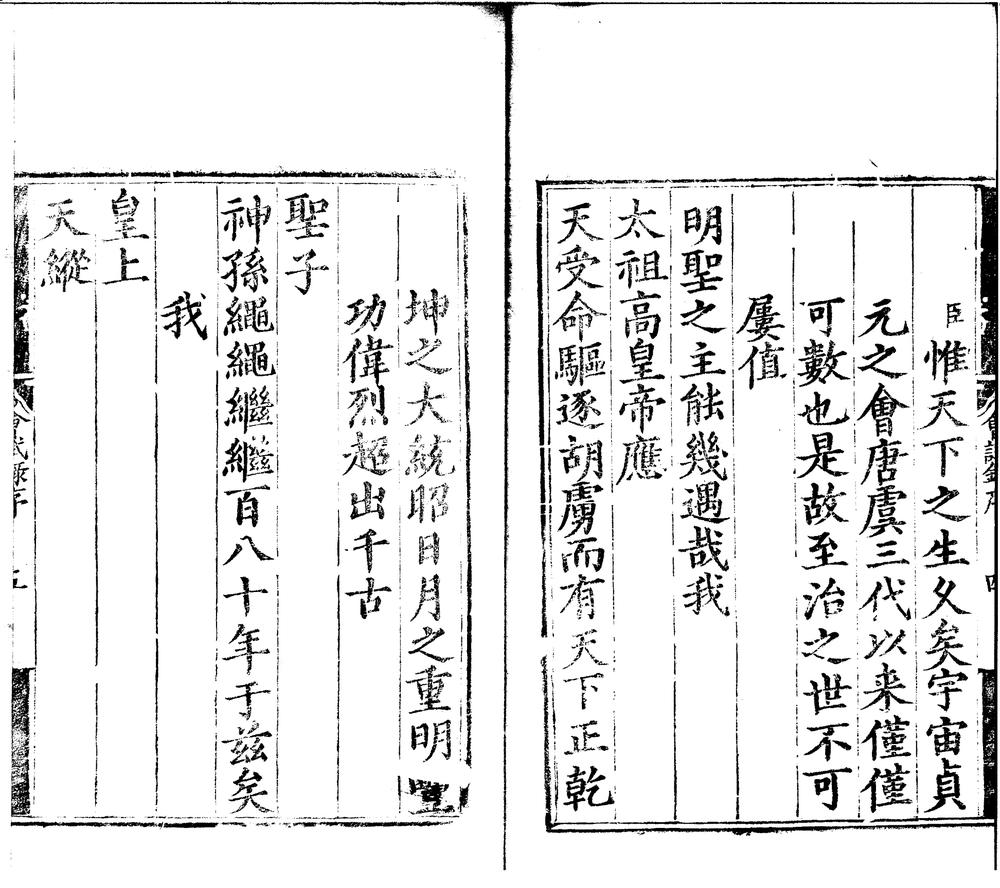 臣惟天下之生久矣宇宙貞
元之會唐虞三代以来僅僅
可數也是故至治之世不可
屢值
明聖之主能幾遇哉我
太祖高皇帝應
天受命驅逐胡虜而有天下正乾
坤之大統昭日月之重明豐
功偉烈超出千古
聖子
神孫繩繩繼繼百八十年于茲矣
我
皇上
天縱
會試錄序
四
會試錄序
五